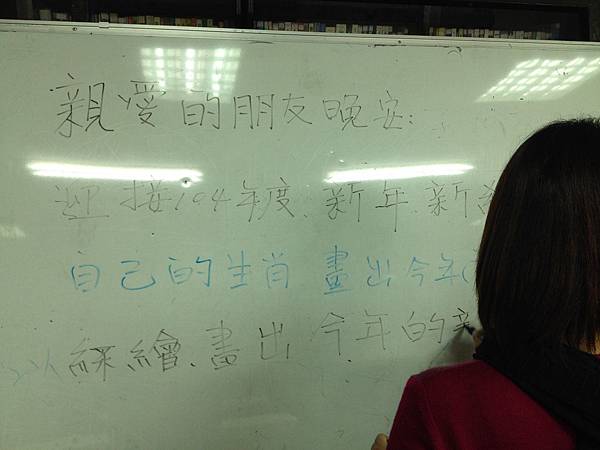 親愛的朋友晚安：
迎接104年度．新年．新
自己的生肖 畫出今年(
以綵繪．畫出 今年的